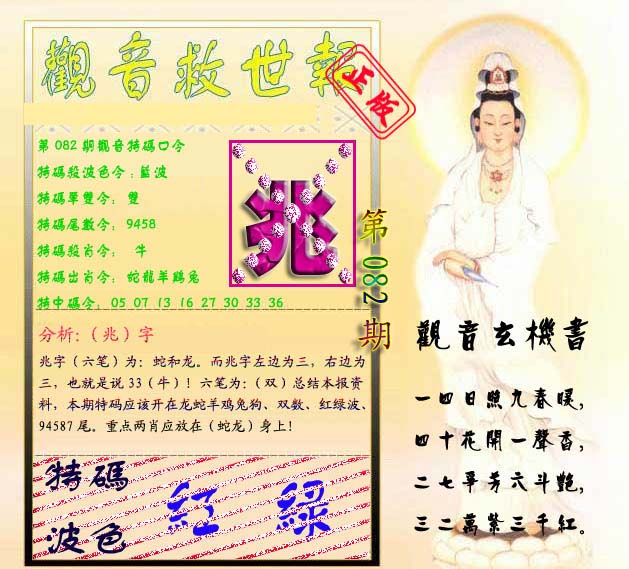 觀音救世報
正版
第082期觀音特碼口令
特碼殺波色令：藍波
特碼單雙令： 雙
特碼尾數令： 9458
特碼殺肖令： 牛
特碼出肖令： 蛇龍羊鷄兔
特中碼令： 05 07 13 16 27 30 33 36
兆
第082期
分析:（兆）字
兆字（六笔）为：蛇和龙。而兆字左边为三，右边为
三，也就是说33（牛）！六笔为：（双）总结本报资
料，本期特码应该开在龙蛇羊鸡兔狗、双数、红绿波、
94587尾。重点两肖应放在（蛇龙）身上！
特碼
波色
紅 綠
觀音玄機書
一四日照九春暖，
四十花開一聲香，
二七爭芳六斗艷，
三二萬紫三千紅。